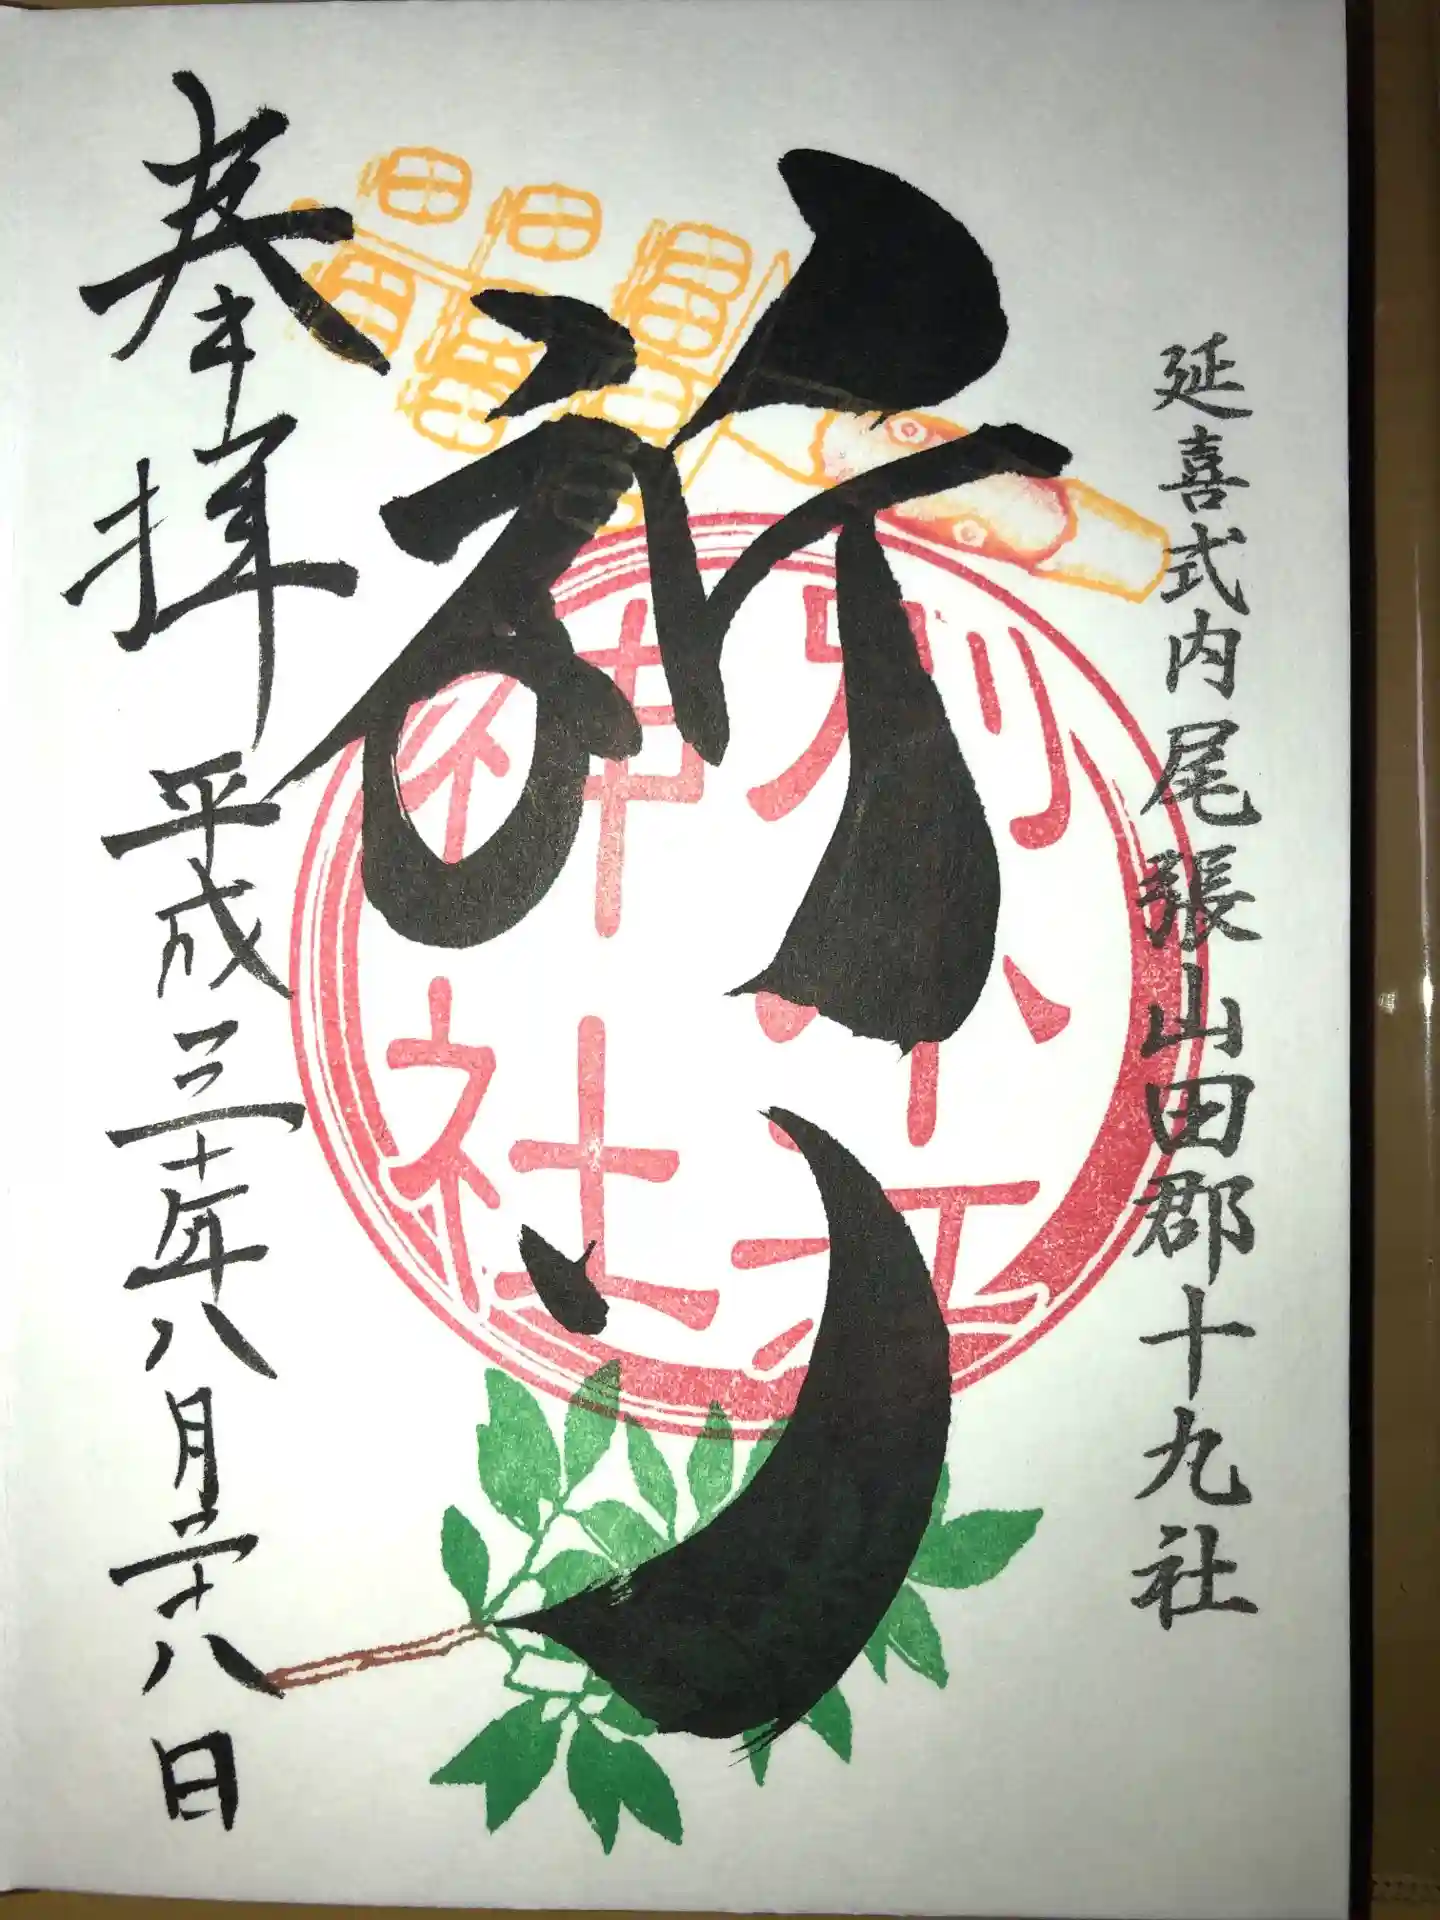 延喜式内尾張山田郡十九社
祈り
別小江
神社
奉拝 平成三十年八月二十八日